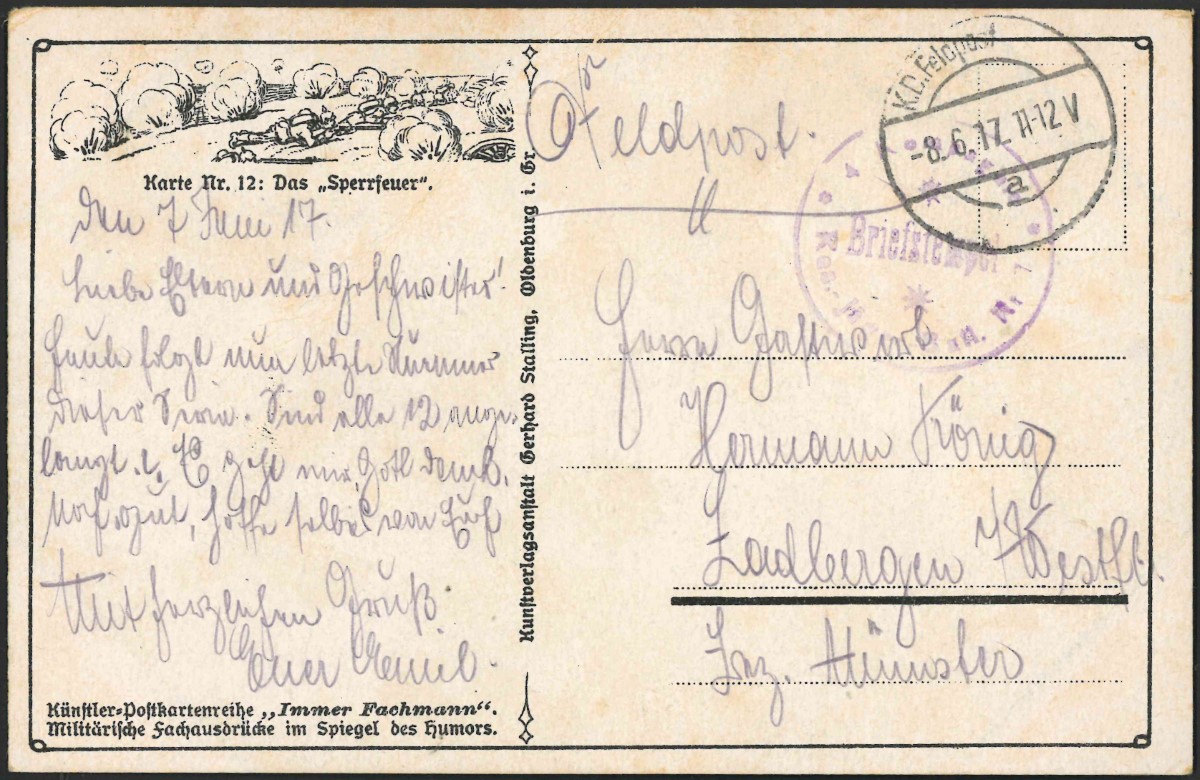 Karte Nr. 12: Das „Sperrfeuer“.
den 7 Juni 17.
Liebe Eltern und Geschwister!
Heute folgt nun letzte Nummer
dieser Serie. Sind alle 12 ange-
langt. Es geht mir, Gott dank,
noch gut, hoffe selbes von Euch
Mit herzlichem Gruß
Euer Emil.
Künstler-Postkartenreihe „Immer Fachmann“.
Militärische Fachausdrücke im Spiegel des Humors.
Kunstverlagsanstalt Gerhard Stalling, Oldenburg i. Gr
Feldpost.
K.D. Feldpost
-8.6.17. 11-12 V
a
Briefstempel
Nr
Herrn Gastwirt
Hermann König
Ladbergen Westf.
Bez. Münster